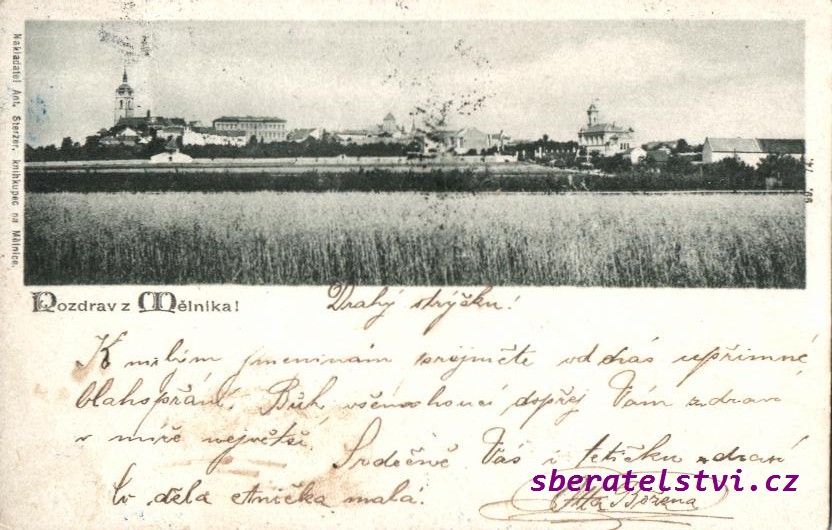 Nakladatel Ant. Sterzer, knihkupec na Mělnice.
Pozdrav z Mělníka!
Drahý strýčku!
K milým jmeninám srdjměte od nás upřímné
blahopřání. Bůh všemohoucí dopřej Vám zdraví
v míře největší. Srdečně Vás i tetičku zdraví
Co dělá Anička malá.
Otta Božena
sberatelstvi.cz